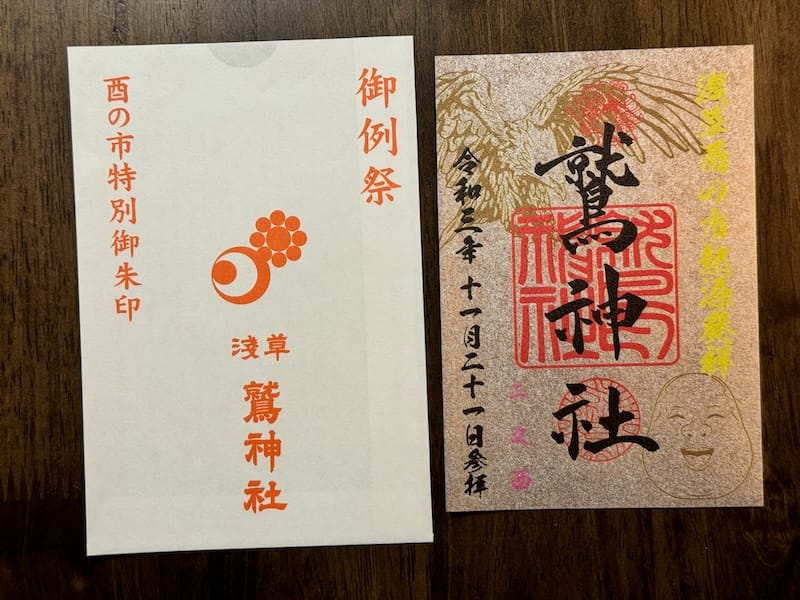 御例祭
酉の市特別御朱印
淺草
鷲神社
浅草酉の市起源発祥
鷲神社
二之酉
令和三年 十一月二十一日参拝